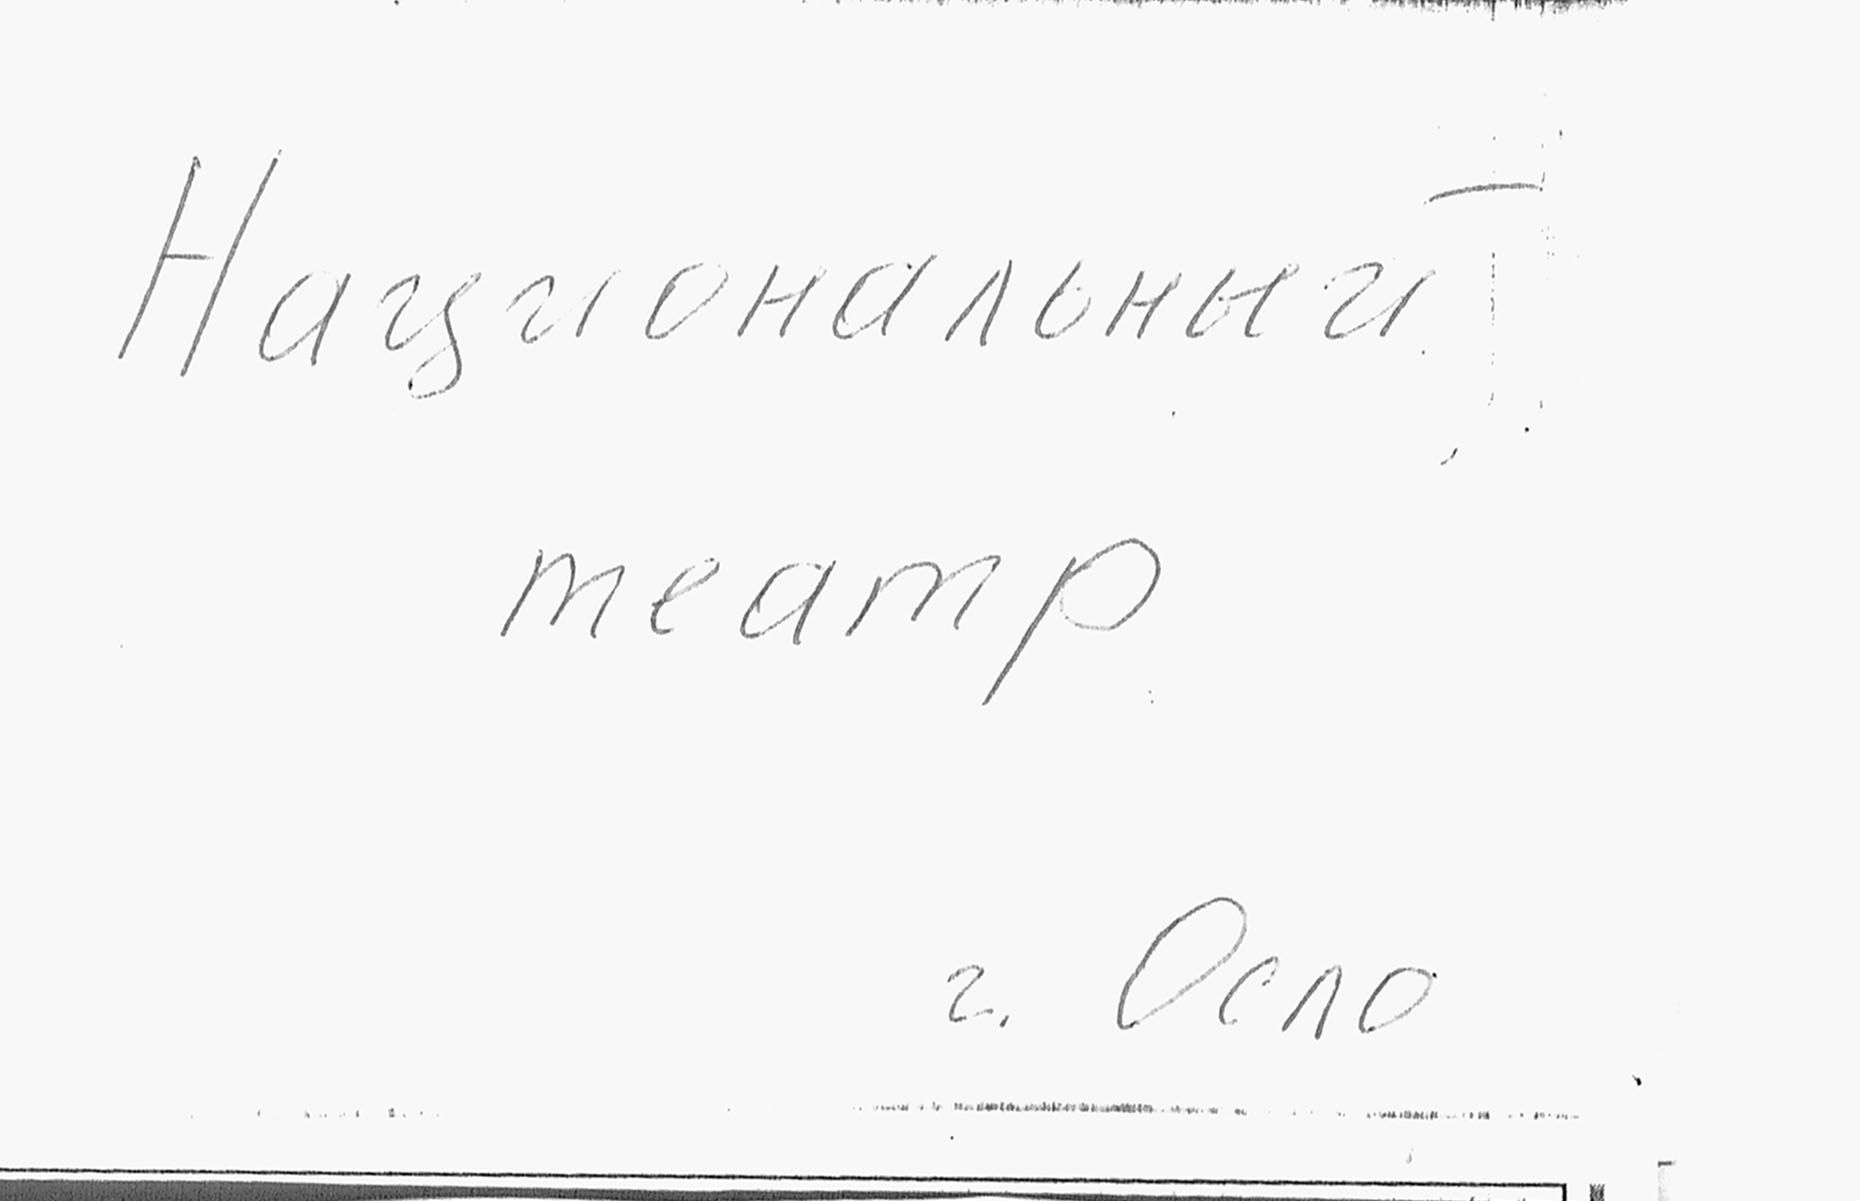 Национальный
театр
г. Осло